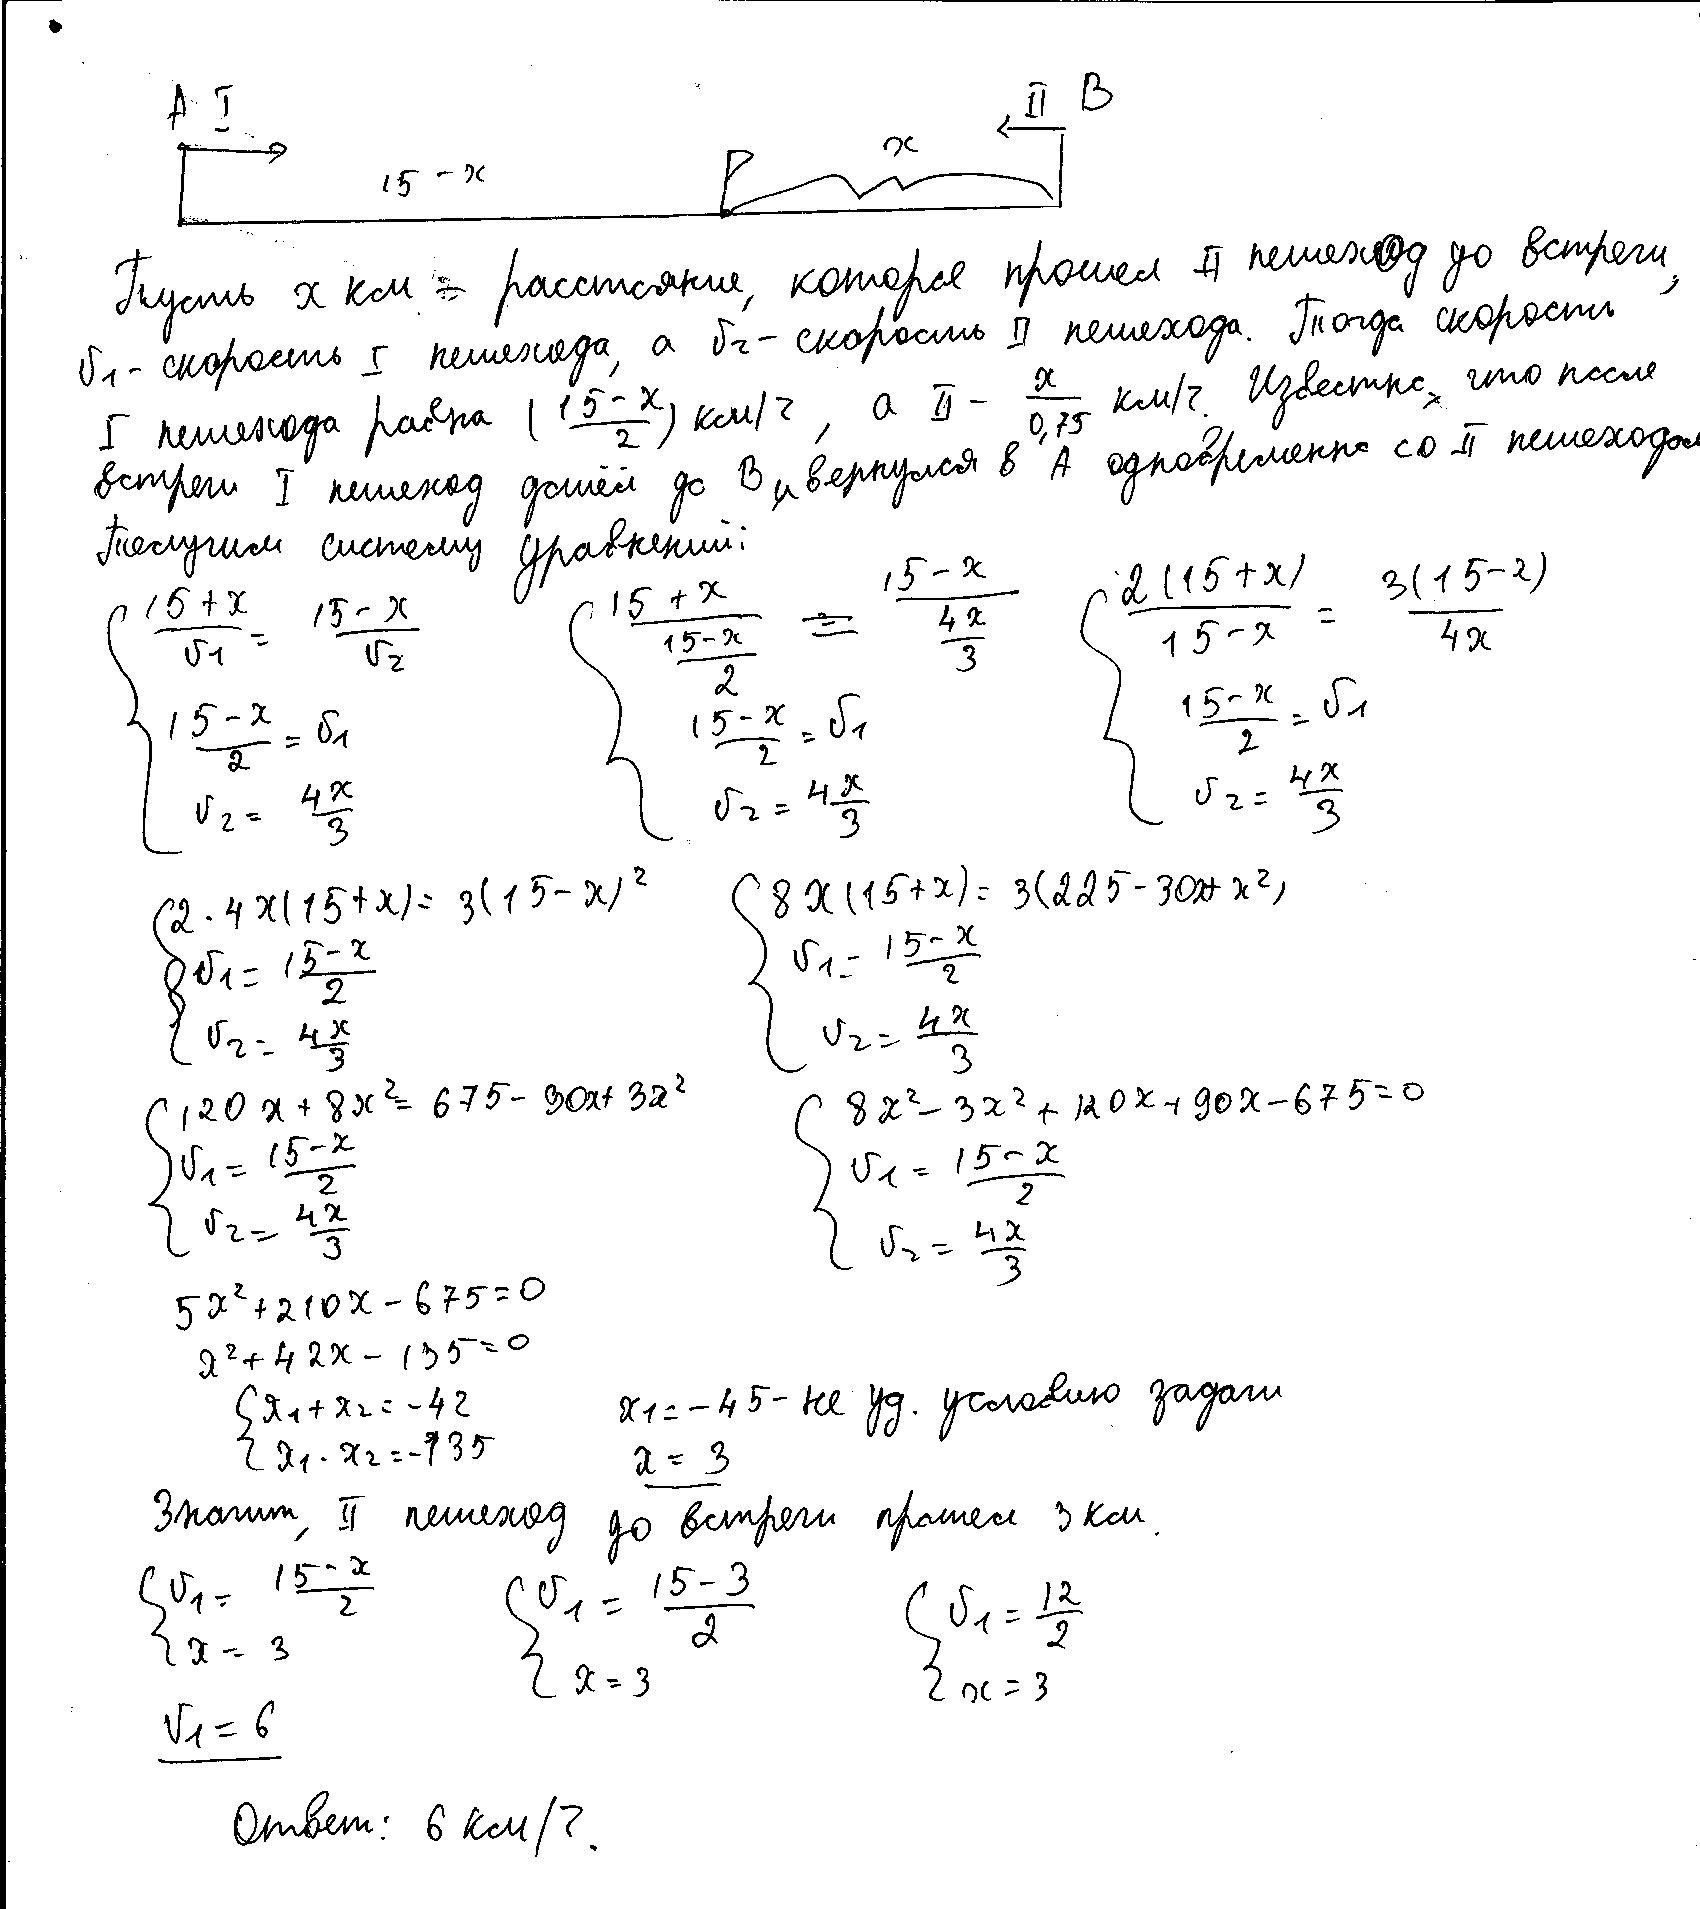 A I II B
15 - x x
Пусть x км = расстояние, которое прошел II пешеход до встречи,
v₁ - скорость I пешехода, а v₂ - скорость II пешехода. Тогда скорость
I пешехода равна (15-x/2) км/ч, а II - x/0,75 км/ч. Известно, что после
встречи I пешеход дошёл до B и вернулся в A одновременно со II пешеходом
Получим систему уравнений:
{ 15+x/v₁ = 15-x/v₂ { 15+x/(15-x/2) = 15-x/(4x/3) { 2(15+x)/15-x = 3(15-x)/4x
15-x/2 = v₁ 15-x/2 = v₁ 15-x/2 = v₁
v₂ = 4x/3 v₂ = 4x/3 v₂ = 4x/3
{ 2·4x(15+x) = 3(15-x)² { 8x(15+x) = 3(225-30x+x²)
v₁ = 15-x/2 v₁ = 15-x/2
v₂ = 4x/3 v₂ = 4x/3
{ 120x + 8x² = 675 - 90x + 3x² { 8x² - 3x² + 120x + 90x - 675 = 0
v₁ = 15-x/2 v₁ = 15-x/2
v₂ = 4x/3 v₂ = 4x/3
5x² + 210x - 675 = 0
x² + 42x - 135 = 0
{ x₁ + x₂ = -42 x₁ = -45 - не уд. условию задачи
x₁ · x₂ = -135 x = 3
Значит, II пешеход до встречи прошел 3 км.
{ v₁ = 15-x/2 { v₁ = 15-3/2 { v₁ = 12/2
x = 3 x = 3 x = 3
v₁ = 6
Ответ: 6 км/ч.